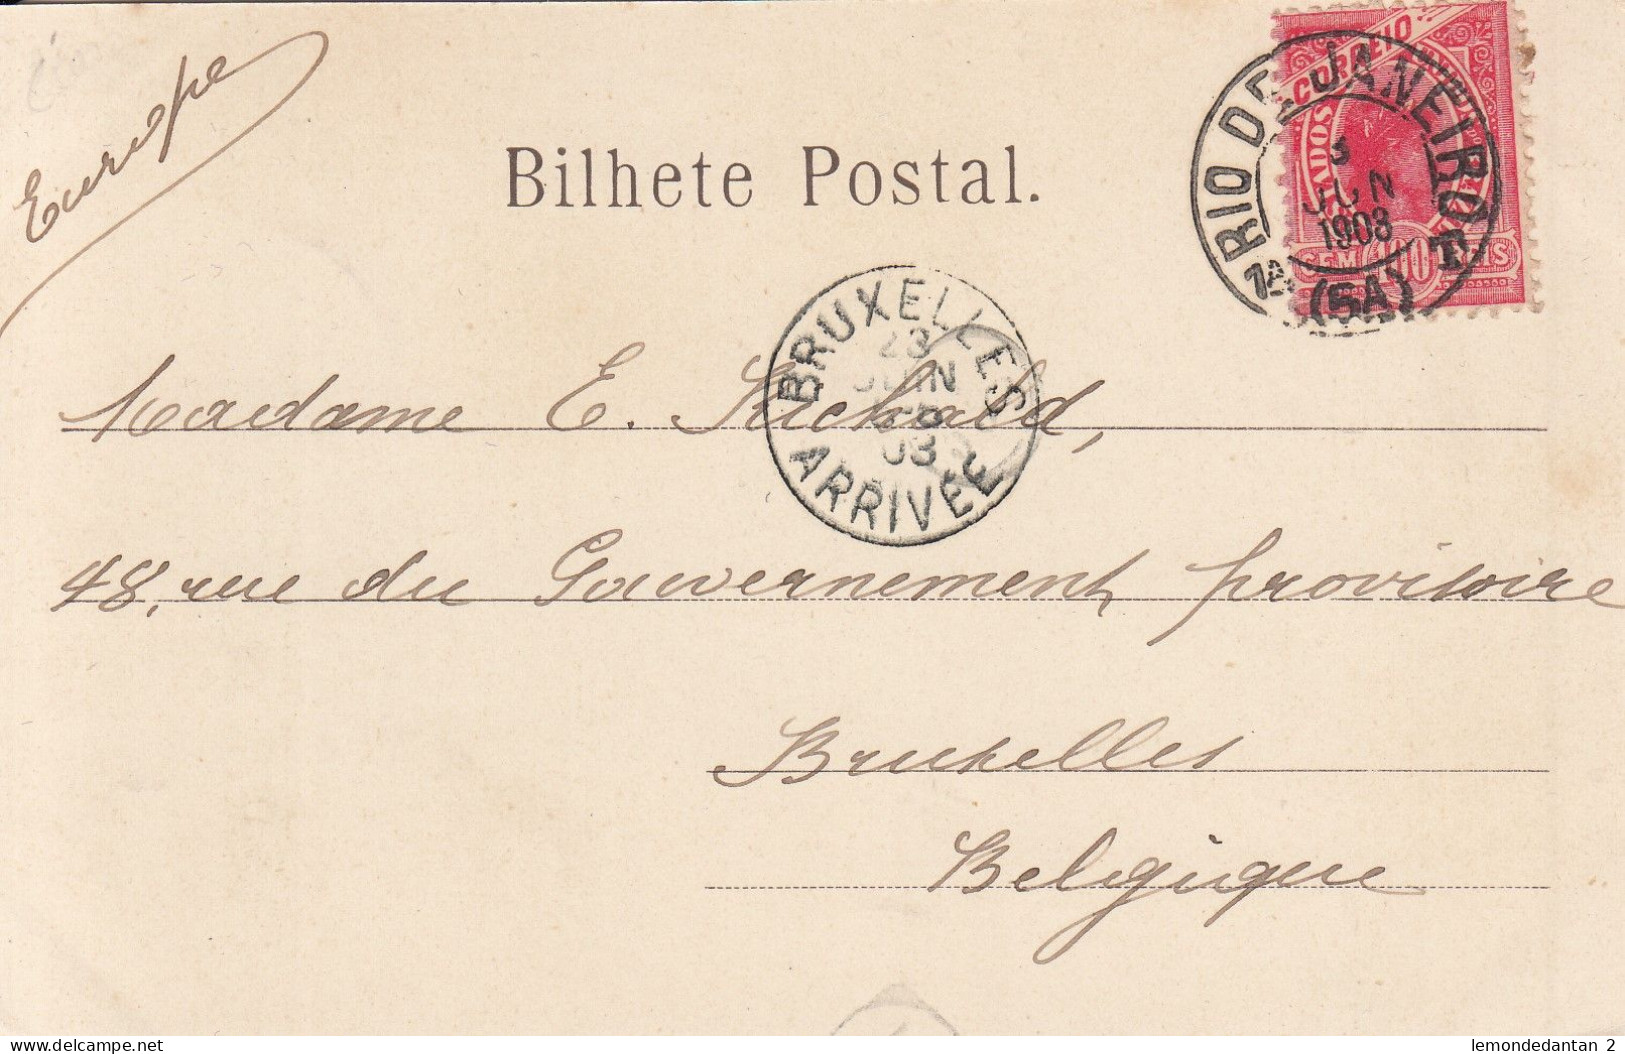 Europe
Bilhete Postal.
CORREIO
CEM 100 REIS
RIO DE JANEIRO
3
JUN
1903
1A (5A) T
BRUXELLES
23
JUIN
03
ARRIVÉE
Madame E. Richald,
48, rue du Gouvernement provisoire
Bruxelles
Belgique
lemondedantan 2
http://www.delcampe.net